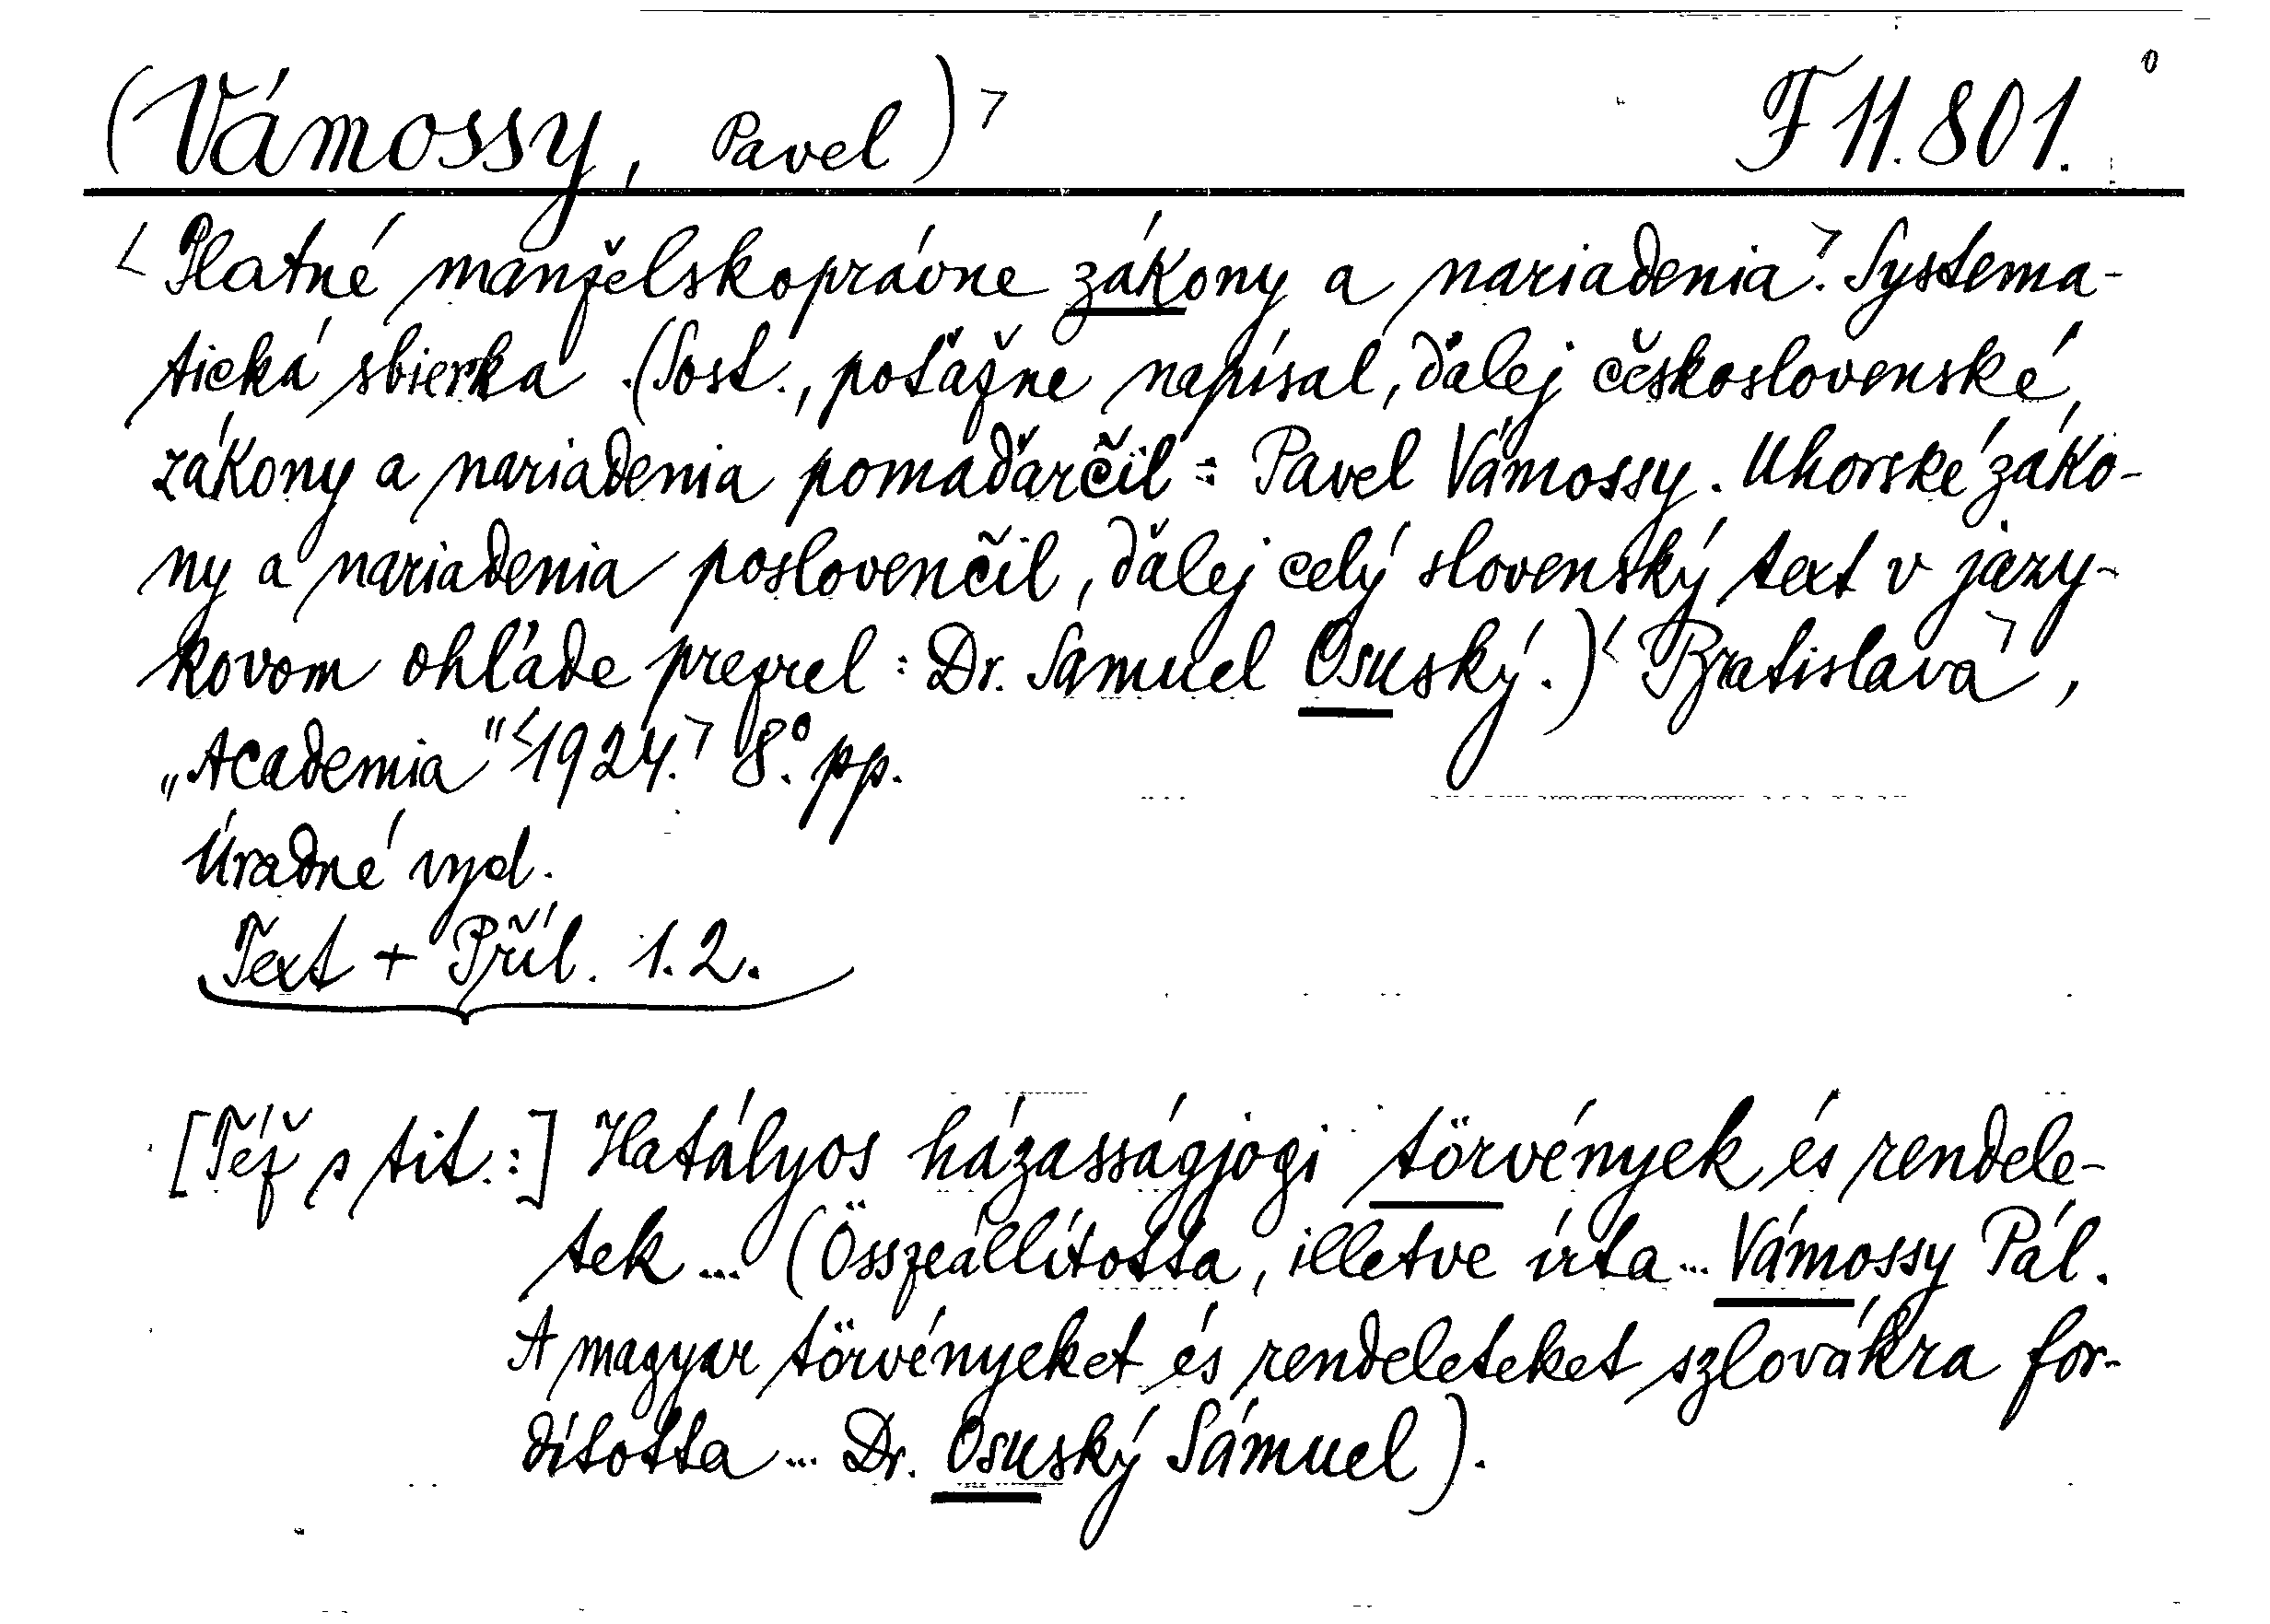 (Vámossy, Pavel)> F 11.801.
<Platné manželskoprávne zákony a nariadenia>. Systema-
tická sbierka. (Sost., poťažne napísal, ďalej československé
zákony a nariadenia pomaďarčil: Pavel Vámossy. Uhorské záko-
ny a nariadenia poslovenčil, ďalej celý slovenský text v jazy-
kovom ohľade prezrel: Dr. Samuel Osuský.) <Bratislava>,
„Academia" <1924.> 8°. pp.
Úradné vyd.
Text + Příl. 1.2.
[Též s tit.:] Hatályos házasságjogi törvények és rendele-
tek ... (Összeállította, illetve írta ... Vámossy Pál.
A magyar törvényeket és rendeleteket szlovákra for-
dította ... Dr. Osuský Sámuel).